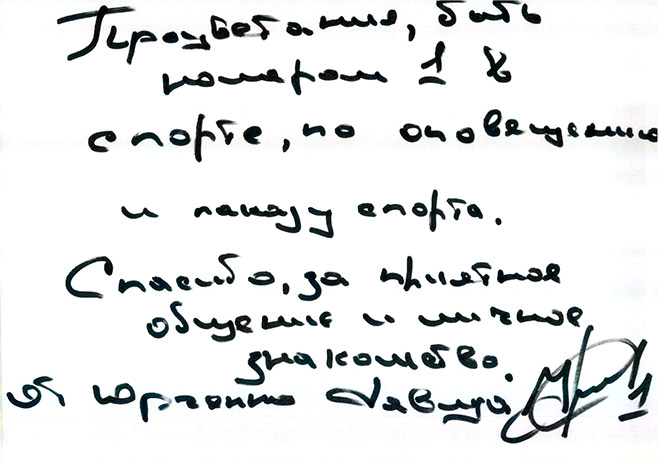 Процветания, быть
номером 1 в
спорте, по оповещению
и показу спорта.
Спасибо, за приятное
общение и личное
знакомство.
от Юрченко Давида
1